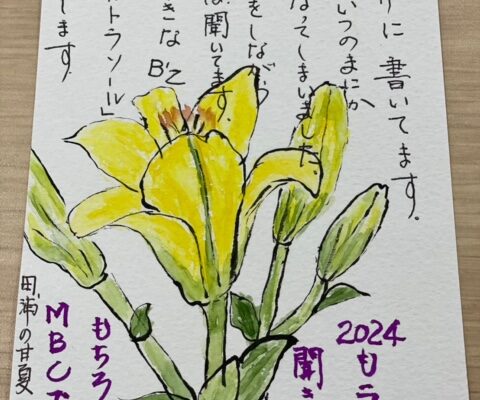 りに 書いてます。
いつのまにか
なってしまいました
をしながら
は聞いてます。
きな B'z
トラソール」
します。
2024 もラ
聞き
もちろ
MBC
田浦の甘夏